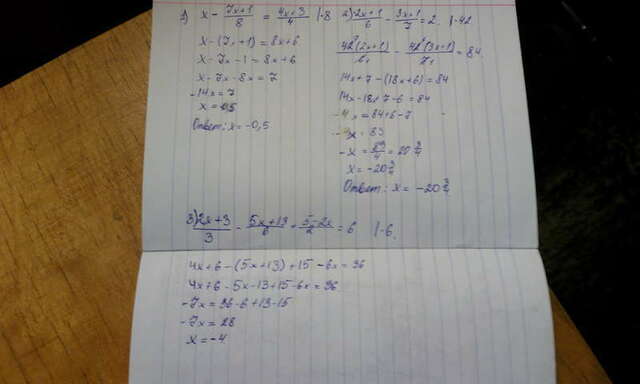 1) x - 7x+1/8 = 4x+3/4 |·8
x-(7x+1)=8x+6
x-7x-1=8x+6
x-7x-8x=7
-14x=7
x=0,5
Ответ: x=-0,5
2) 2x+1/6 - 3x+1/7 = 2. |·42
42(2x+1)/6 - 42(3x+1)/7 = 84.
14x+7-(18x+6)=84
14x-18x+7-6=84
-4x=84+6-7
-4x=83
-x=83/4=20 3/4
x=-20 3/4
Ответ: x=-20 3/4
3) 2x+3/3 - 5x+13/6 + 5-2x/2 = 6 |·6.
4x+6-(5x+13)+15-6x=36
4x+6-5x-13+15-6x=36
-7x=36-6+13-15
-7x=28
x=-4